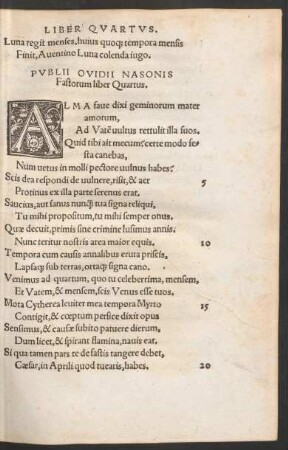 LIBER QVARTVS.
Luna regit menses, huius quoq; tempora mensis
Finit, Auentino Luna colenda iugo.
PVBLII OVIDII NASONIS
Fastorum liber Quartus.
ALMA faue dixi geminorum mater
amorum,
Ad Vatē uultus rettulit illa suos.
Quid tibi ait mecum? certe modo fe-
sta canebas,
Num uetus in molli pectore uulnus habes?
Scis dea respondi de uulnere, risit, & aer 5
Protinus ex illa parte serenus erat.
Saucius, aut sanus nunqđ tua signa reliqui,
Tu mihi propositum, tu mihi semper onus.
Quæ decuit, primis sine crimine lusimus annis.
Nunc teritur nostris area maior equis. 10
Tempora cum causis annalibus eruta priscis,
Lapsaq; sub terras, ortaq; signa cano.
Venimus ad quartum, quo tu celeberrima, mensem,
Et Vatem, & mensem, scis Venus esse tuos.
Mota Cytheree leuiter mea tempora Myrto 15
Contigit, & cœptum perfice dixit opus
Sensimus, & causæ subito patuere dierum,
Dum licet, & spirant flamina, nauis eat.
Si qua tamen pars te de fastis tangere debet,
Cæsar, in Aprili quod tuearis, habes. 20